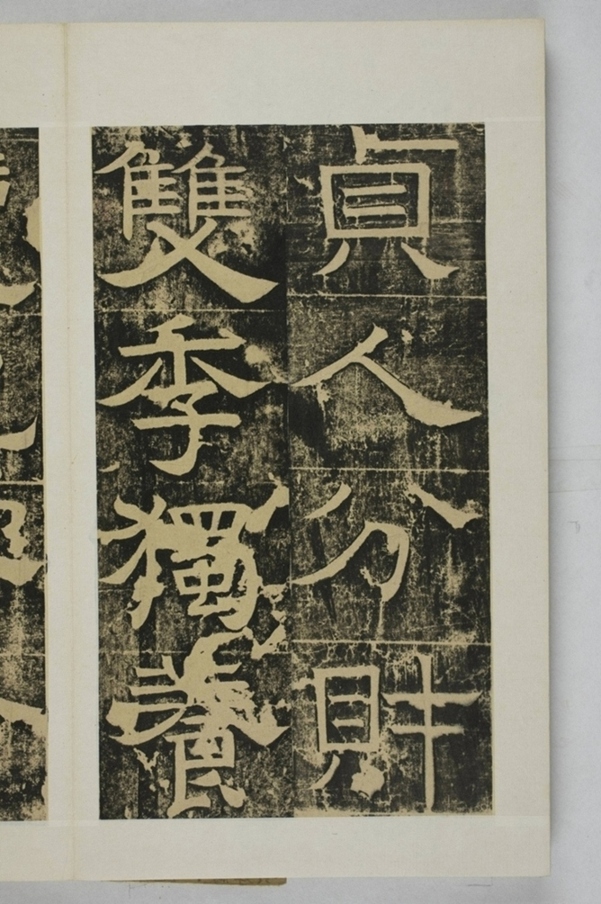 貞人分財
雙季獨養